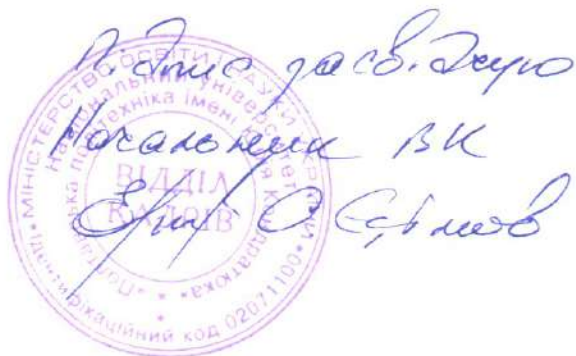 Підпис засвідчую
Начальник ВК
О. Єфімов
МІНІСТЕРСТВО ОСВІТИ І НАУКИ УКРАЇНИ
Національний університет
«Полтавська політехніка імені Юрія Кондратюка»
ідентифікаційний код 02071100
ВІДДІЛ
КАДРІВ